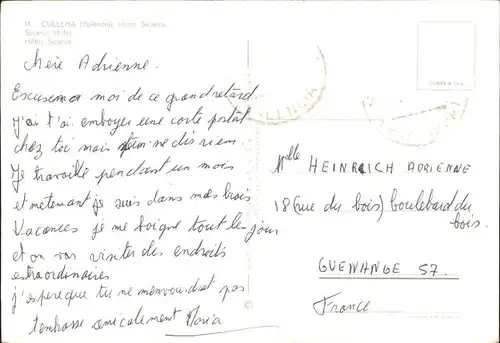 11 CULLERA (Valencia) Hotel Sicania
Sicania Hotel
Hôtel Sicania
chère Adrienne.
Excusemoi moi de ce grand retard
j'ai t'ai emboyer une corte postal
chez toi mais tu ne dis rien.
Je travaille pendant un mois
et metenant je suis dans mes brais
Vacances je me baigne tout les jour
et on vas visiter des endroits
estraordinaires
j'espere que tu ne m'en voudrat pas
amicalement Maria
Mlle HEINRICH ADRIENNE
18 (rue du bois) boulebard du
bois.
GUENANGE 57.
France